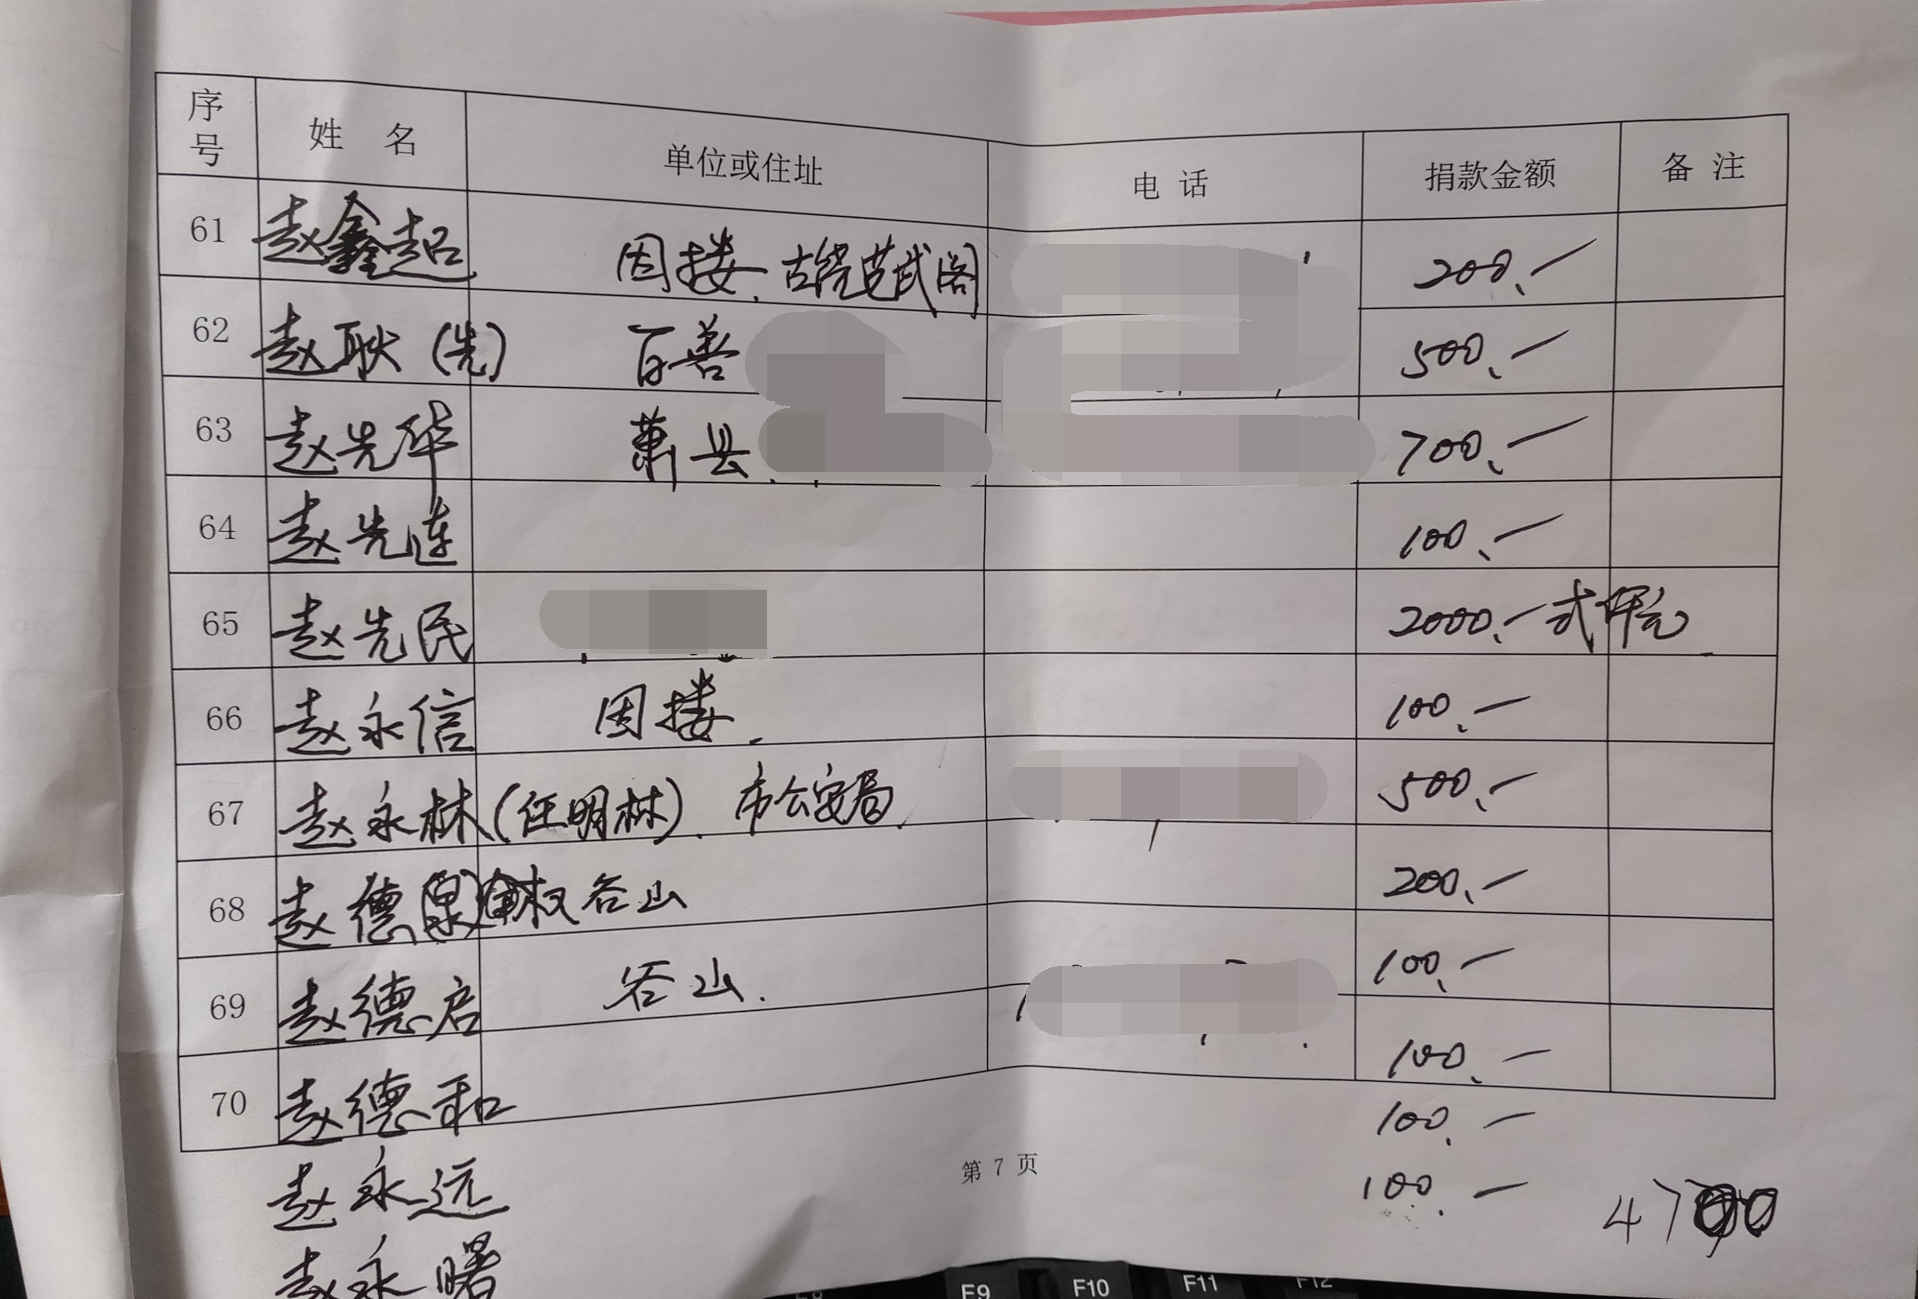 序号 姓 名 单位或住址 电 话 捐款金额 备 注
61 赵鑫起 因搂、古饶范武阁 200.—
62 赵耿(先) 百善 500.—
63 赵先华 萧县 700.—
64 赵先连 100.—
65 赵先民 2000.— 弍仟元
66 赵永信 因搂. 100.—
67 赵永林(任明林). 市公安局. 500.—
68 赵德(泉) 权 谷山 200.—
69 赵德启 谷山. 100.—
70 赵德和 100.—
赵永远 100.—
赵永曙 100.—
第 7 页
4700
F9 F10 F11 F12